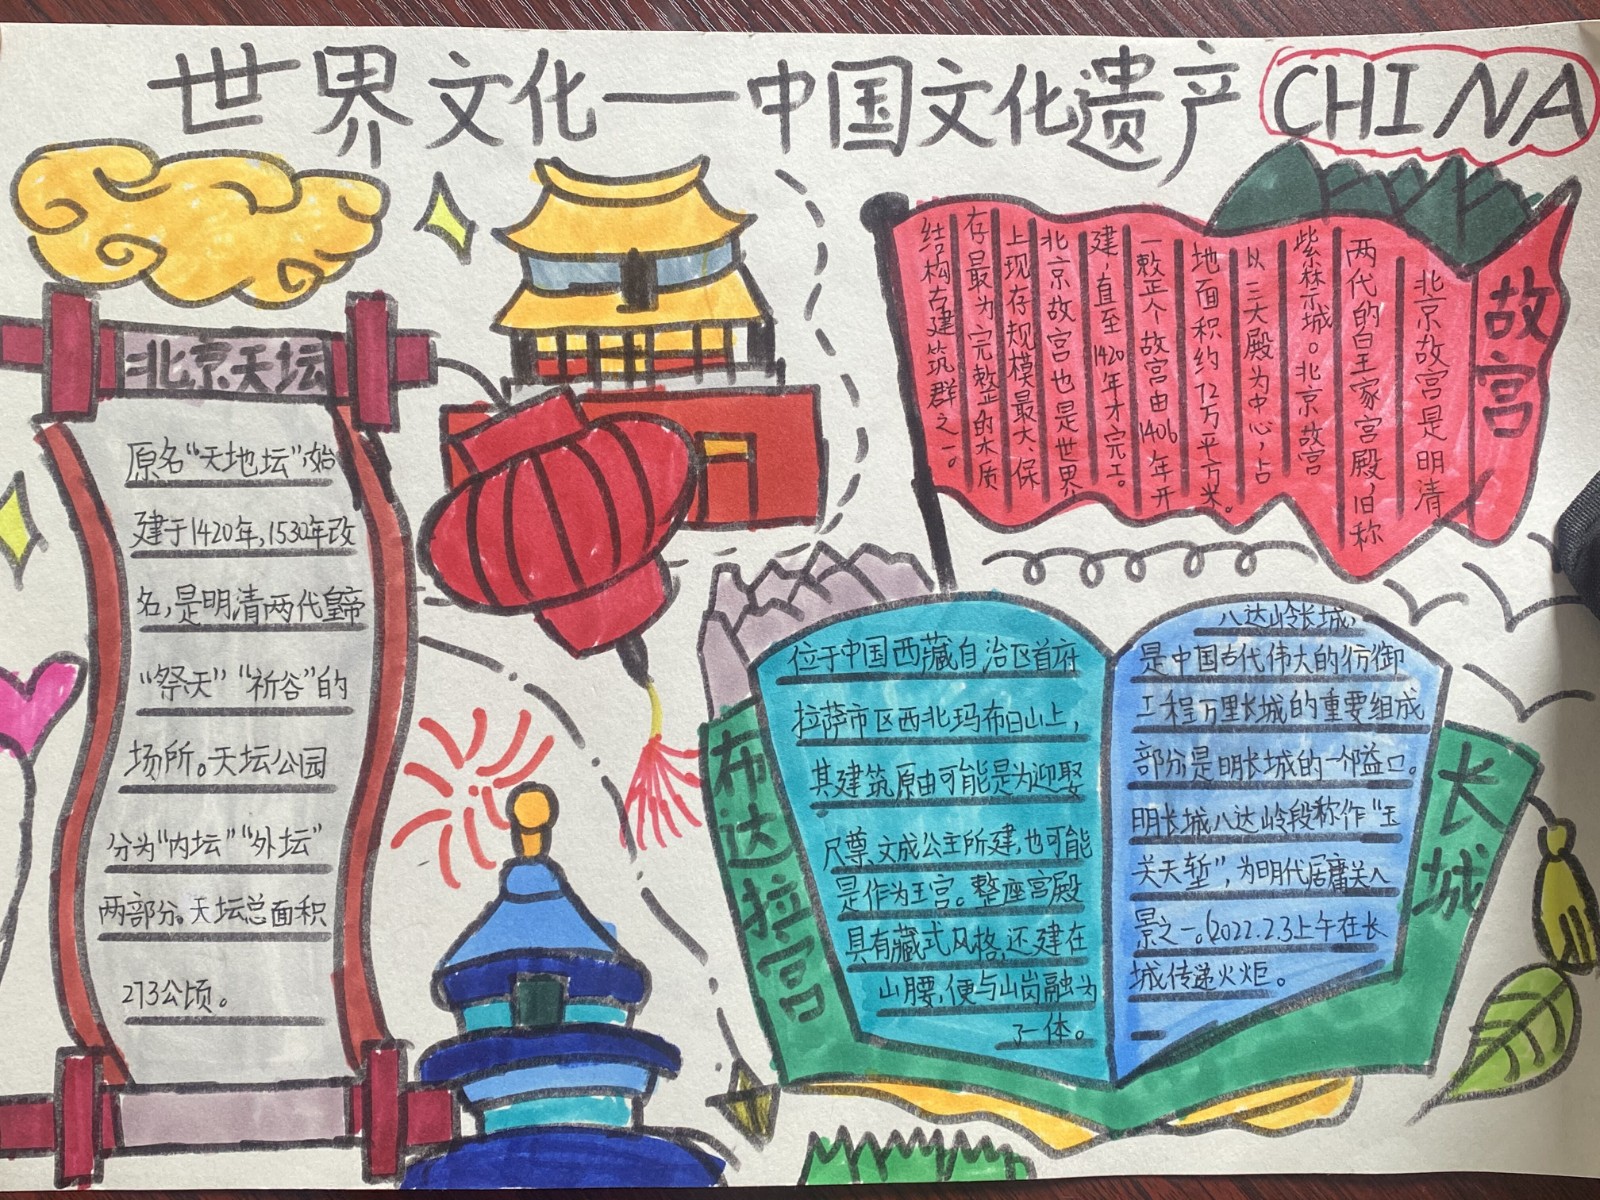 世界文化——中国文化遗产 CHINA
北京天坛
原名“天地坛”,始
建于1420年,1530年改
名,是明清两代皇帝
“祭天”“祈谷”的
场所。天坛公园
分为“内坛”“外坛”
两部分。天坛总面积
273公顷。
故宫
北京故宫是明清
两代的皇家宫殿,旧称
紫禁城。北京故宫
以三大殿为中心,占
地面积约72万平方米。
一整个故宫由1406年开
建,直至1420年才完工。
北京故宫也是世界
上现存规模最大、保
存最为完整的木质
结构古建筑群之一。
布达拉宫
位于中国西藏自治区首府
拉萨市区西北玛布日山上,
其建筑原由可能是为迎娶
尺尊、文成公主所建,也可能
是作为王宫。整座宫殿
具有藏式风格,还建在
山腰,便与山岗融为
了一体。
长城
八达岭长城,
是中国古代伟大的仿御
工程万里长城的重要组成
部分,是明长城的一个隘口。
明长城八达岭段称作“玉
关天堑”,为明代居庸关八
景之一。(2022.2.3上午在长
城传递火炬。